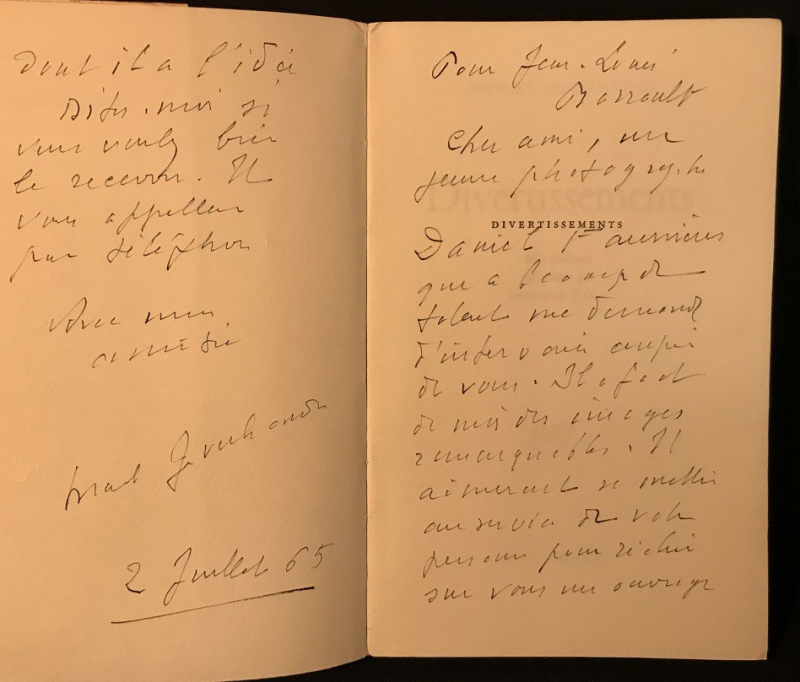 Pour Jean-Louis
Barrault
Cher ami, un
jeune photographe
Divertissements
DIVERTISSEMENTS
Daniel
qui a beaucoup de
talent me demande
d'intervenir auprès
de vous. Il a fait
de moi des images
remarquables. Il
aimerait se mettre
au service de votre
personne pour
sur vous un ouvrage
dont il a l'idée
Dites-moi si
vous voulez bien
le recevoir. Il
vous appellera
par téléphone
Avec mon
amitié
Marcel Jouhandeau
2 Juillet 65